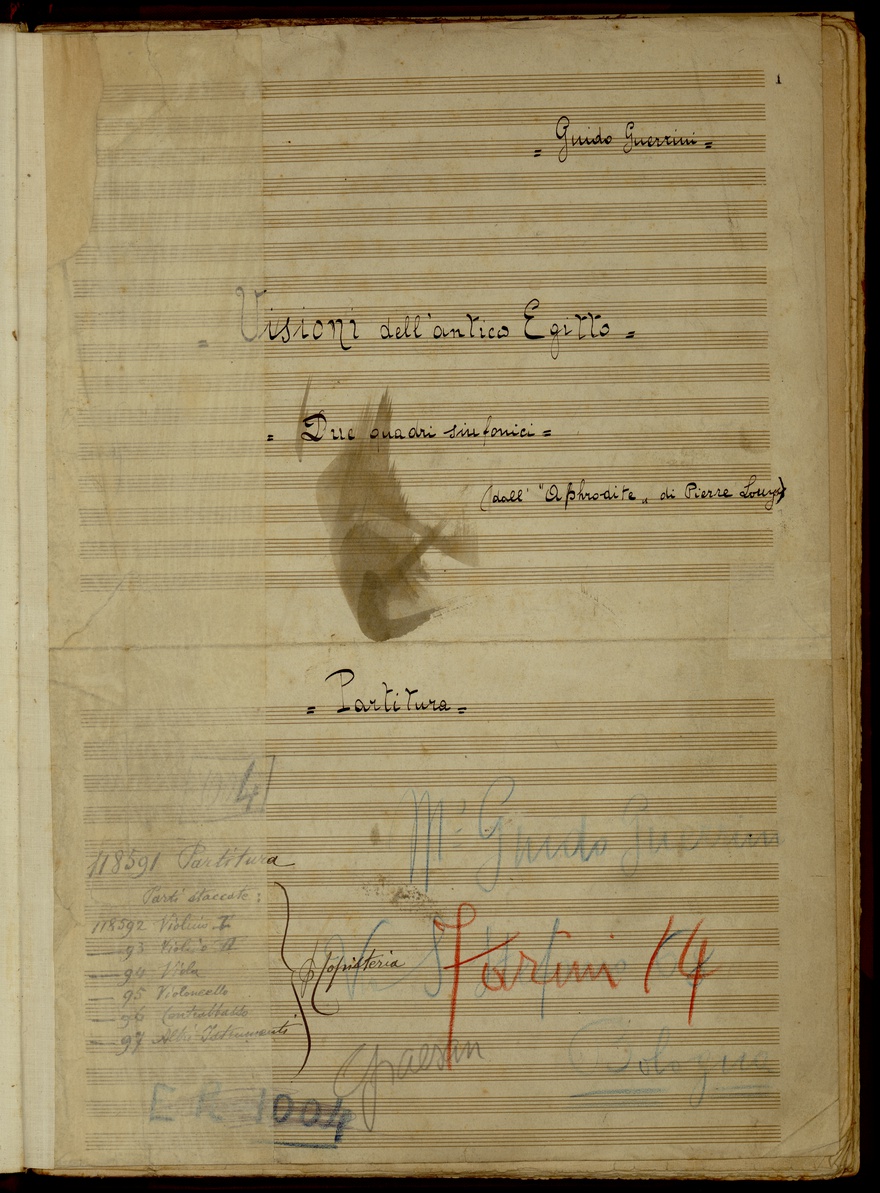 1
= Guido Guerrini =
= Visioni dell'antico Egitto =
= Due quadri sinfonici =
(dall' "Aphrodite" di Pierre Louÿs)
= Partitura =
M° Guido Guerrini
118591 Partitura
Parti staccate:
118592 Violino I
— 93 Violino II
— 94 Viola
— 95 Violoncello
— 96 Contrabbasso
— 97 Altri Istrumenti
Copisteria
Tartini 14
Bologna
E R 1004